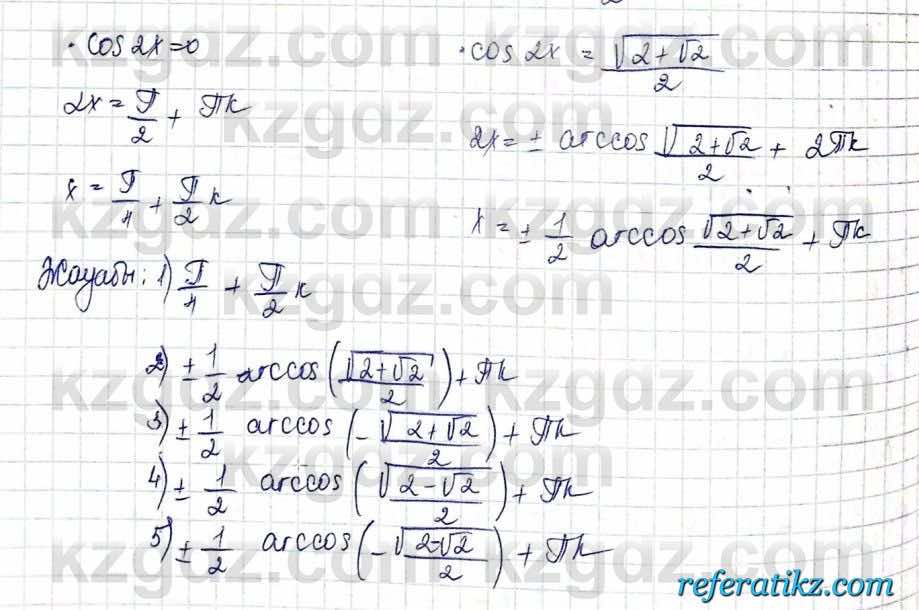 · cos 2x = 0
2x = П/2 + Пk
x = П/4 + П/2 k
· cos 2x = √(2+√2)/2
2x = ± arccos √(2+√2)/2 + 2Пk
x = ± 1/2 arccos √(2+√2)/2 + Пk
Жауабы: 1) П/4 + П/2 k
2) ± 1/2 arccos (√(2+√2)/2) + Пk
3) ± 1/2 arccos (-√(2+√2)/2) + Пk
4) ± 1/2 arccos (√(2-√2)/2) + Пk
5) ± 1/2 arccos (-√(2-√2)/2) + Пk
kzgdz.com
referatikz.com